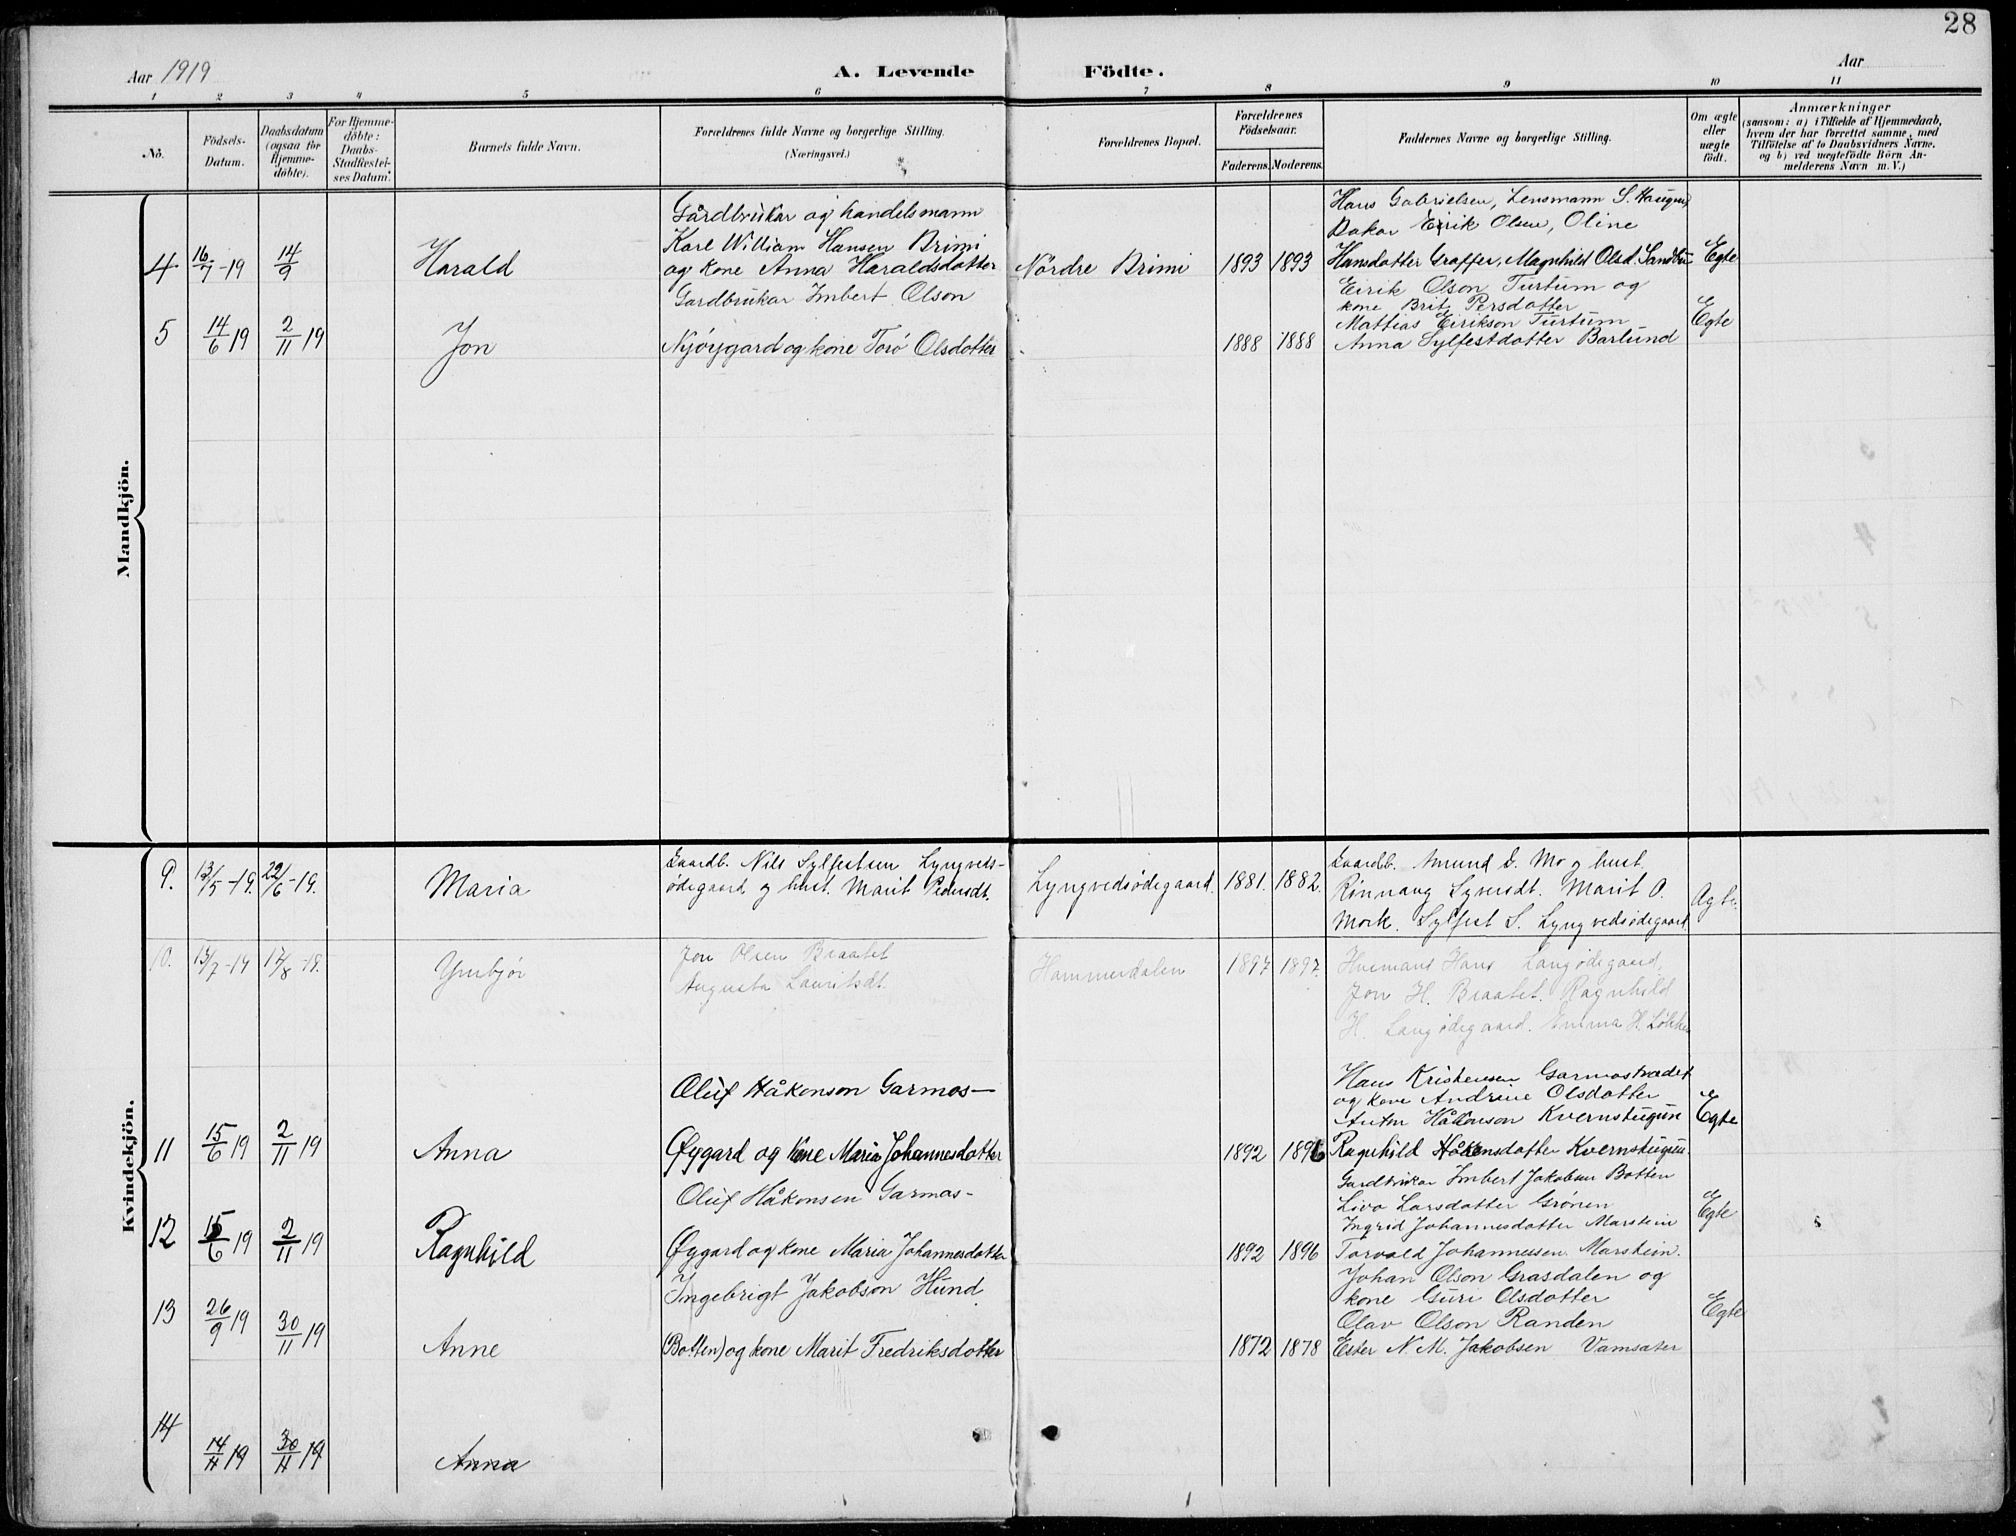 28
Aar 1919
A. Levende Födte.
Aar
1 2 3 4 5 6 7 8 9 10 11
No.
Födsels-
Datum.
Daabsdatum
(ogsaa for
Hjemme-
döbte).
For Hjemme-
döbte:
Daabs-
Stadfæstel-
ses Datum.
Barnets fulde Navn.
Forældrenes fulde Navne og borgerlige Stilling.
(Næringsvei.)
Forældrenes Bopæl.
Forældrenes
Födselsaar.
Faderens. Moderens.
Faddernes Navne og borgerlige Stilling.
Om ægte
eller
uægte
födt.
Anmærkninger
(saasom: a) i Tilfælde af Hjemmedaab,
hvem der har forrettet samme, med
Tilföielse af to Daabsvidners Navne,
og b) ved uægtefödte Börn An-
melderens Navn m. V.)
Mandkjön.
4 16/7-19 14/9
Harald
Gårdbrukar og handelsmann
Karl William Hansen Brimi
og kone Anna Haraldsdotter
Nordre Brimi
1893 1893
Hans Gabrielsen, Lensmann S. Haugen,
Bakar Eirik Olsen, Oline
Hansdotter Graffer, Magnhild Olsd. Sandbu
Egte
5 14/6 19 2/11 19
Jon
Gardbrukar Imbert Olson
Nyöygard og kone Torö Olsdotter
1888 1888
Eirik Olson Turtum og
kone Brit Persdotter
Mattias Eirikson Turtum
Anna Sylfestdotter Barlund
Egte
Kvindekjön.
9. 13/5-19. 22/6-19.
Maria
Gaardb. Nils Sylfestsen Lyngveds-
ødegaard og hust. Marit Pedersdt.
Lyngvedsødegaard.
1881. 1882.
Gaardb. Amund E. Mo og hust.
Rønnaug Syversdt. Marit O.
Mork. Sylfest S. Lyngvedsødegaard
Ægte.
10. 13/7-19 17/8-19.
Ymbjør
Jon Olsen Braatet
Augusta Lauritsdt.
Hammerdalen
1897 1897
Husmans Hans Langødegaard,
Jon H. Braatet. Ragnhild
H. Langødegaard. Emma H. Løkken
11 15/6 19 2/11 19
Anna
Oluf Håkonson Garmos-
Øygard og kone Maria Johannesdotter
1892 1896
Hans Kristensen Garmostrædet
og kone Andrine Olsdotter
Anton Håkonson Kvernstugun
Ragnhild Håkonsdotter Kvernstugun
Egte
12 15/6 19 2/11 19
Ragnhild
Oluf Håkonsen Garmos-
Øygard og kone Maria Johannesdotter
1892 1896
Gardbrukar Imbert Jakobsen Botten
Liva Larsdotter Grönen
Ingrid Johannesdotter Marstein
Torvald Johannessen Marstein.
Egte
13 26/9 19 30/11 19
Anne
Ingebrigt Jakobson Hund
(Botten) og kone Marit Fredriksdotter
1872 1878
Johan Olson Grasdalen og
kone Guri Olsdotter
Olav Olson Randen
Ester N. M. Jakobsen Vamsater
Egte
14 14/11 19 30/11 19
Anna